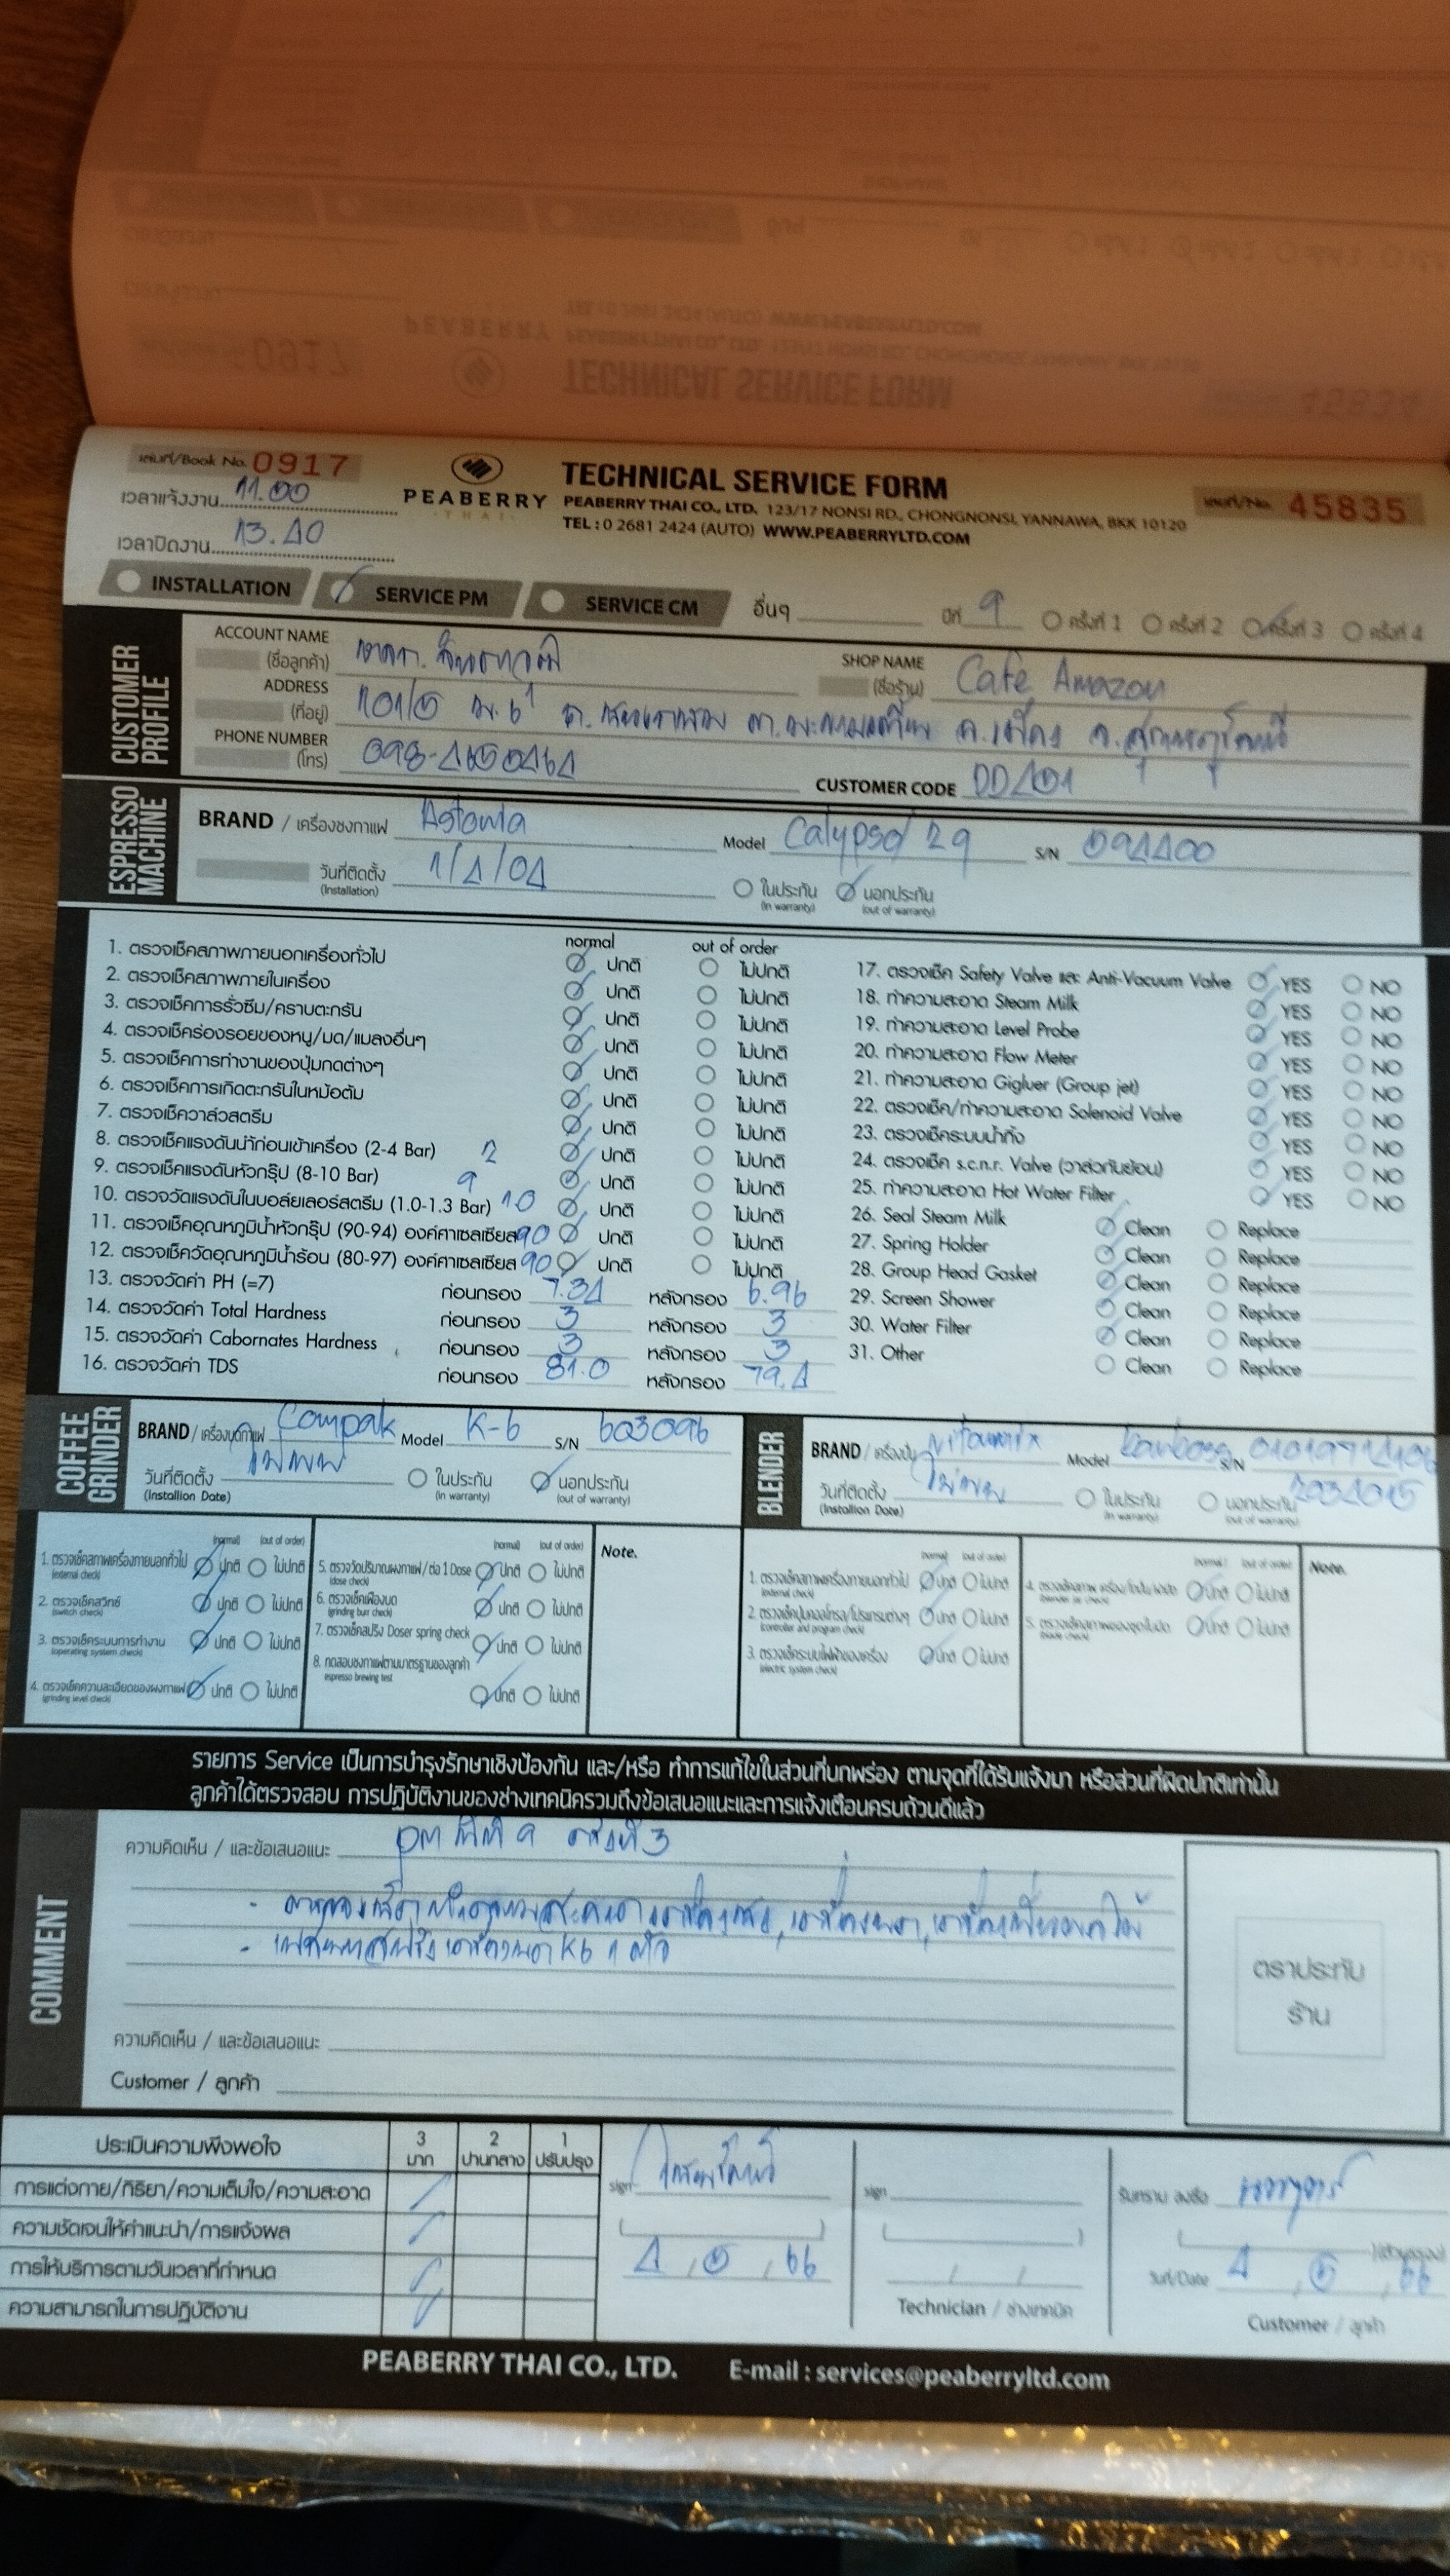 เล่มที่/Book No. 0917
TECHNICAL SERVICE FORM
เลขที่/No. 45835
เวลาแจ้งงาน 11.00
PEABERRY
THAI
PEABERRY THAI CO., LTD. 123/17 NONSI RD., CHONGNONSI, YANNAWA, BKK 10120
TEL : 0 2681 2424 (AUTO) WWW.PEABERRYLTD.COM
เวลาปิดงาน 13.40
INSTALLATION SERVICE PM SERVICE CM อื่นๆ ปีที่ 9 ครั้งที่ 1 ครั้งที่ 2 ครั้งที่ 3 ครั้งที่ 4
CUSTOMER PROFILE
ACCOUNT NAME
(ชื่อลูกค้า)
SHOP NAME
(ชื่อร้าน) Cafe Amazon
ADDRESS
(ที่อยู่) 101/5 ม.6
PHONE NUMBER
(โทร)
CUSTOMER CODE DD401
ESPRESSO MACHINE
BRAND / เครื่องชงกาแฟ Astoria Model Calypso 2g S/N 094400
วันที่ติดตั้ง 1/4/54
(Installation)
ในประกัน นอกประกัน
(in warranty) (out of warranty)
normal out of order
1. ตรวจเช็คสภาพภายนอกเครื่องทั่วไป ปกติ ไม่ปกติ
2. ตรวจเช็คสภาพภายในเครื่อง ปกติ ไม่ปกติ
3. ตรวจเช็คการรั่วซึม/คราบตะกรัน ปกติ ไม่ปกติ
4. ตรวจเช็คร่องรอยของหนู/มด/แมลงอื่นๆ ปกติ ไม่ปกติ
5. ตรวจเช็คการทำงานของปุ่มกดต่างๆ ปกติ ไม่ปกติ
6. ตรวจเช็คการเกิดตะกรันในหม้อต้ม ปกติ ไม่ปกติ
7. ตรวจเช็ควาล์วสตรีม ปกติ ไม่ปกติ
8. ตรวจเช็คแรงดันน้ำก่อนเข้าเครื่อง (2-4 Bar) 2 ปกติ ไม่ปกติ
9. ตรวจเช็คแรงดันหัวกรุ๊ป (8-10 Bar) 9 ปกติ ไม่ปกติ
10. ตรวจวัดแรงดันในบอล์ยเลอร์สตรีม (1.0-1.3 Bar) 1.0 ปกติ ไม่ปกติ
11. ตรวจเช็คอุณหภูมิน้ำหัวกรุ๊ป (90-94) องค์ศาเซลเซียส 90 ปกติ ไม่ปกติ
12. ตรวจเช็ควัดอุณหภูมิน้ำร้อน (80-97) องค์ศาเซลเซียส 90 ปกติ ไม่ปกติ
13. ตรวจวัดค่า PH (=7) ก่อนกรอง 7.34 หลังกรอง 6.96
14. ตรวจวัดค่า Total Hardness ก่อนกรอง 3 หลังกรอง 3
15. ตรวจวัดค่า Cabornates Hardness ก่อนกรอง 3 หลังกรอง 3
16. ตรวจวัดค่า TDS ก่อนกรอง 81.0 หลังกรอง 79.4
17. ตรวจเช็ค Safety Valve และ Anti-Vacuum Valve YES NO
18. ทำความสะอาด Steam Milk YES NO
19. ทำความสะอาด Level Probe YES NO
20. ทำความสะอาด Flow Meter YES NO
21. ทำความสะอาด Gigluer (Group jet) YES NO
22. ตรวจเช็ค/ทำความสะอาด Solenoid Valve YES NO
23. ตรวจเช็คระบบน้ำทิ้ง YES NO
24. ตรวจเช็ค s.c.n.r. Valve (วาล์วกันย้อน) YES NO
25. ทำความสะอาด Hot Water Filter YES NO
26. Seal Steam Milk Clean Replace
27. Spring Holder Clean Replace
28. Group Head Gasket Clean Replace
29. Screen Shower Clean Replace
30. Water Filter Clean Replace
31. Other Clean Replace
COFFEE GRINDER
BRAND / เครื่องบดกาแฟ Compak Model K-6 S/N 603096
วันที่ติดตั้ง ไม่พบ
(Installion Date)
ในประกัน นอกประกัน
(in warranty) (out of warranty)
BLENDER
BRAND / เครื่องปั่น Vitamix Model S/N
วันที่ติดตั้ง ไม่พบ
(Installion Date)
ในประกัน นอกประกัน
(in warranty) (out of warranty)
(normal) (out of order)
1. ตรวจเช็คสภาพเครื่องภายนอกทั่วไป ปกติ ไม่ปกติ
(external check)
2. ตรวจเช็คสวิทซ์ ปกติ ไม่ปกติ
(switch check)
3. ตรวจเช็คระบบการทำงาน ปกติ ไม่ปกติ
(operating system check)
4. ตรวจเช็คความละเอียดของผงกาแฟ ปกติ ไม่ปกติ
(grinding level check)
(normal) (out of order)
5. ตรวจวัดปริมาณผงกาแฟ/ต่อ 1 Dose ปกติ ไม่ปกติ
(dose check)
6. ตรวจเช็คเฟืองบด ปกติ ไม่ปกติ
(grinding burr check)
7. ตรวจเช็คสปริง Doser spring check ปกติ ไม่ปกติ
8. ทดสอบชงกาแฟตามมาตรฐานของลูกค้า
espresso brewing test ปกติ ไม่ปกติ
Note.
(normal) (out of order)
1. ตรวจเช็คสภาพเครื่องภายนอกทั่วไป ปกติ ไม่ปกติ
(external check)
2. ตรวจเช็คปุ่มคอลโทรล/โปรแกรมต่างๆ ปกติ ไม่ปกติ
(controller and program check)
3. ตรวจเช็คระบบไฟฟ้าของเครื่อง ปกติ ไม่ปกติ
(electric system check)
(normal) (out of order)
ปกติ ไม่ปกติ
ปกติ ไม่ปกติ
(blade check)
Note.
รายการ Service เป็นการบำรุงรักษาเชิงป้องกัน และ/หรือ ทำการแก้ไขในส่วนที่บกพร่อง ตามจุดที่ได้รับแจ้งมา หรือส่วนที่ผิดปกติเท่านั้น
ลูกค้าได้ตรวจสอบ การปฏิบัติงานของช่างเทคนิครวมถึงข้อเสนอแนะและการแจ้งเตือนครบถ้วนดีแล้ว
COMMENT
ความคิดเห็น / และข้อเสนอแนะ PM ปีที่ 9 ครั้งที่ 3
ตราประทับ
ร้าน
ความคิดเห็น / และข้อเสนอแนะ
Customer / ลูกค้า
ประเมินความพึงพอใจ 3 มาก 2 ปานกลาง 1 ปรับปรุง
การแต่งกาย/กิริยา/ความเต็มใจ/ความสะอาด
ความชัดเจนให้คำแนะนำ/การแจ้งผล
การให้บริการตามวันเวลาที่กำหนด
ความสามารถในการปฏิบัติงาน
sign
4 / 5 / 66
sign
Technician / ช่างเทคนิค
รับทราบ ลงชื่อ
(ตัวบรรจง)
วันที่/Date 4 / 5 / 66
Customer / ลูกค้า
PEABERRY THAI CO., LTD. E-mail : services@peaberryltd.com